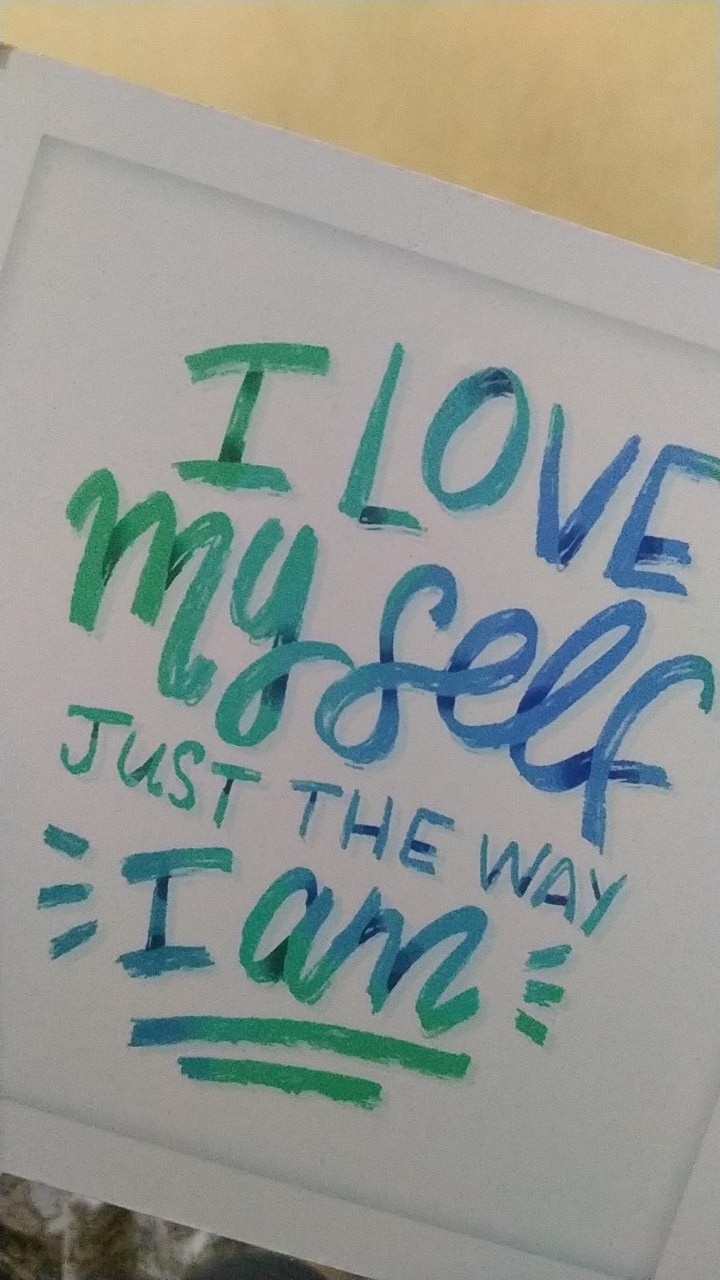 I LOVE
myself
JUST THE WAY
I am